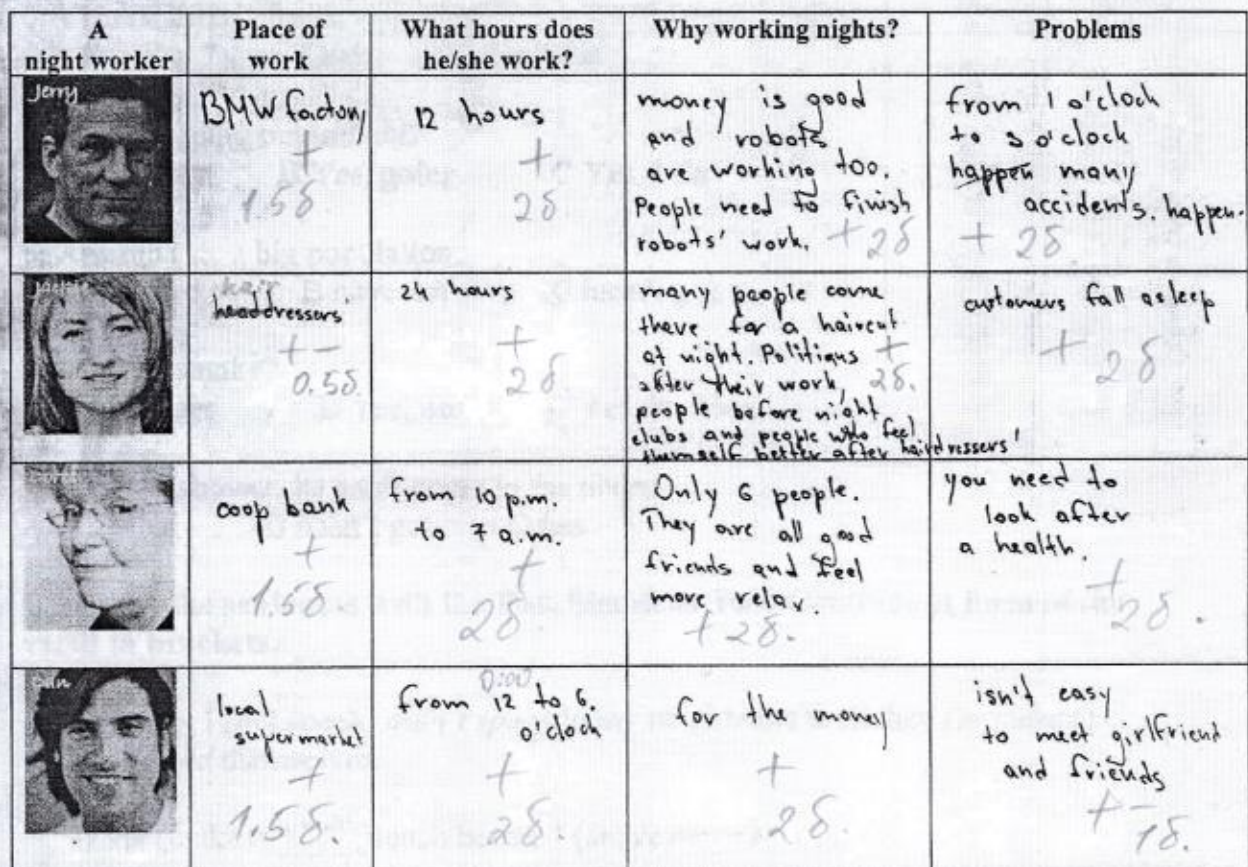 A
night worker
Place of
work
What hours does
he/she work?
Why working nights?
Problems
Jerry
BMW factory
+
1.5б
12 hours
+
2б
money is good
and robots
are working too.
People need to finish
robots' work. + 2б
from 1 o'clock
to 3 o'clock
happen many
accidents. happen.
+ 2б
hair
headdressers
+ -
0.5б.
24 hours
+
2б
many people come
there for a haircut
at night. Politians +
after their work, 2б.
people before night
clubs and people who feel
themself better after hairdressers'
customers fall asleep
+
2б
coop bank
+
1.5б
from 10 p.m.
to 7 a.m.
+
2б.
Only 6 people.
They are all good
friends and feel
more relax
+ 2б.
you need to
look after
a health.
+
2б.
local
supermarket
+
1.5б.
0:00
from 12 to 6.
o'clock
+
2б.
for the money
+
2б.
isn't easy
to meet girlfriend
and friends
+ -
1б.